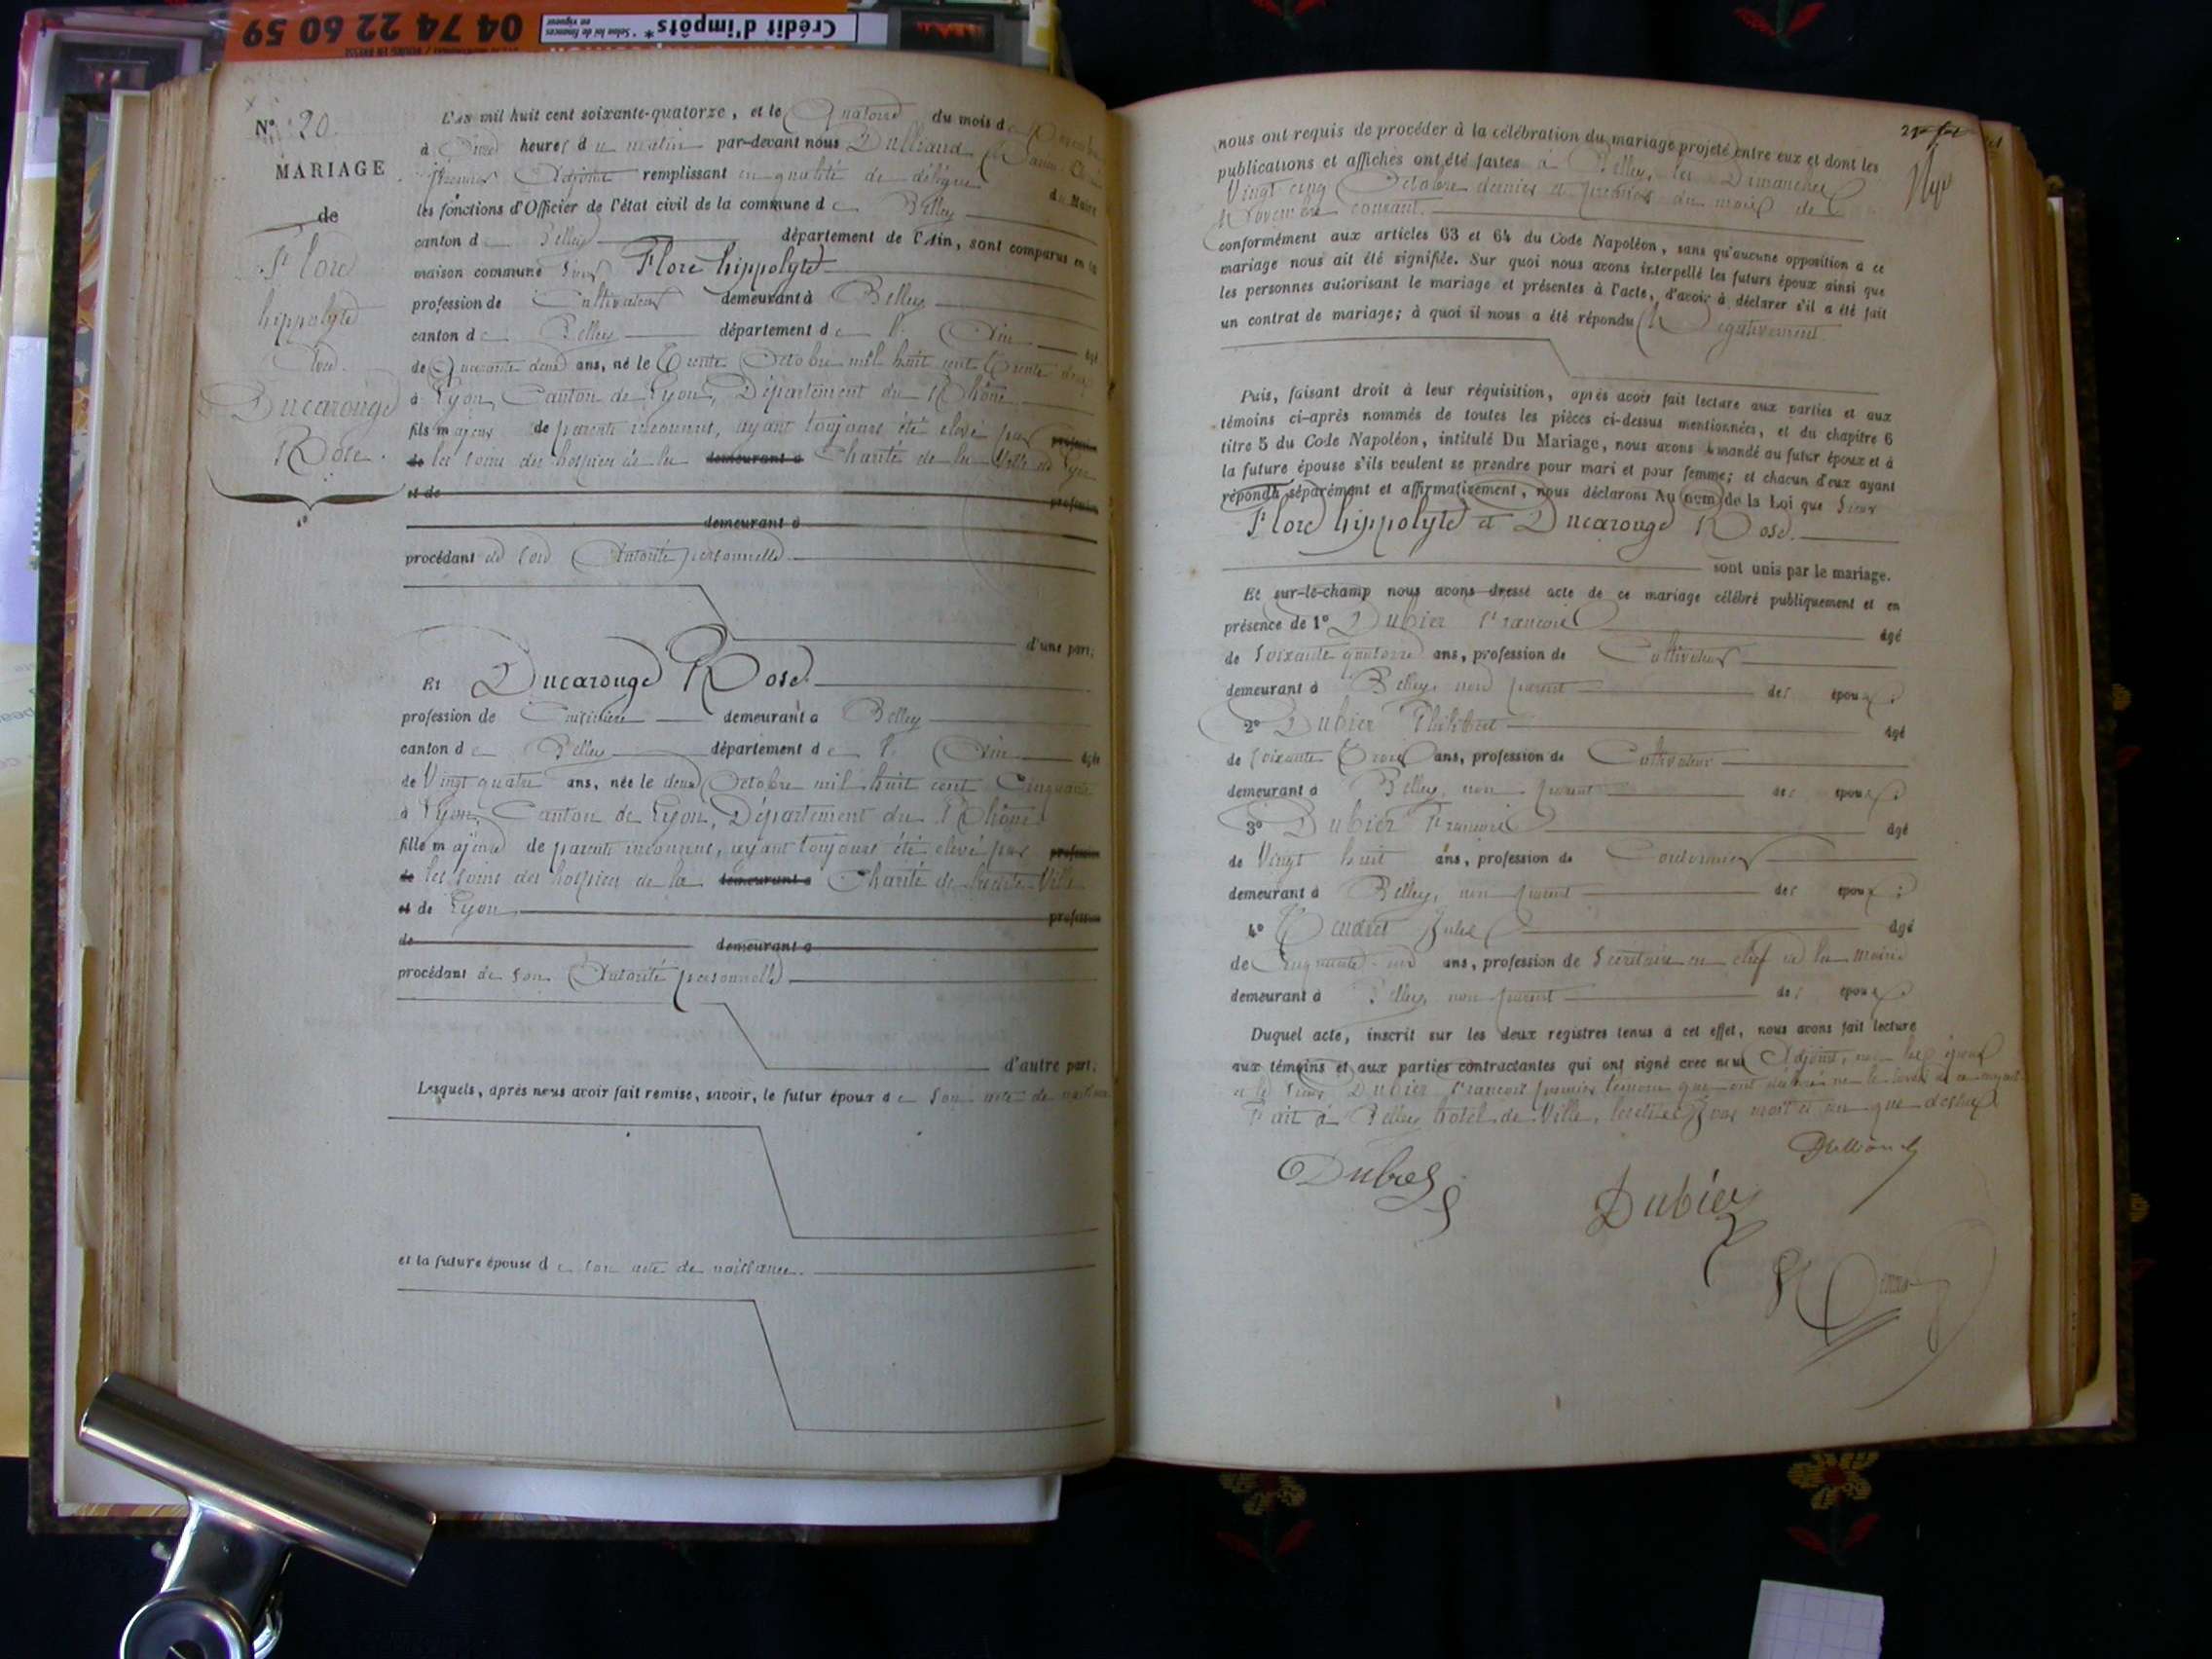 04 74 22 60 59
Crédit d'impôts*
* Selon loi de finances en vigueur
N° 20.
MARIAGE
de
Flore
hippolyte
Ducarouge
Rose.
L'an mil huit cent soixante-quatorze, et le Quatorze du mois de Novembre
à heures du matin par-devant nous Dulliand
premier Adjoint remplissant en qualité de délégué du Maire
les fonctions d'Officier de l'état civil de la commune de Belley
canton de Belley département de l'Ain, sont comparus en la
maison commune Sieur Flore hippolyte
profession de Cultivateur demeurant à Belley
canton de Belley département de l'Ain âgé
de Quarante deux ans, né le Trente Octobre mil huit cent Trente deux
à Lyon, Canton de Lyon, Département du Rhône
fils majeur de parents inconnus, ayant toujours été élevé par profession
de les soins des hospices de la demeurant à Charité de la Ville de Lyon
et de profession
demeurant à
procédant de son Autorité personnelle.
d'une part;
Et Ducarouge Rose.
profession de Cuisinière demeurant à Belley
canton de Belley département de l'Ain âgée
de Vingt quatre ans, née le deux Octobre mil huit cent Cinquante
à Lyon, Canton de Lyon, Département du Rhône
fille majeure de parents inconnus, ayant toujours été élevé par profession
de les soins des hospices de la demeurant à Charité de Ville
et de Lyon profession
de demeurant à
procédant de son Autorité personnelle
d'autre part;
Lesquels, après nous avoir fait remise, savoir, le futur époux de son acte de naissance
et la future épouse de son acte de naissance.
nous ont requis de procéder à la célébration du mariage projeté entre eux et dont les
publications et affiches ont été faites à Belley, les Dimanches
Vingt cinq Octobre dernier et premier du mois de
Novembre courant.
conformément aux articles 63 et 64 du Code Napoléon, sans qu'aucune opposition à ce
mariage nous ait été signifiée. Sur quoi nous avons interpellé les futurs époux ainsi que
les personnes autorisant le mariage et présentes à l'acte, d'avoir à déclarer s'il a été fait
un contrat de mariage; à quoi il nous a été répondu Négativement
Puis, faisant droit à leur réquisition, après avoir fait lecture aux parties et aux
témoins ci-après nommés de toutes les pièces ci-dessus mentionnées, et du chapitre 6
titre 5 du Code Napoléon, intitulé Du Mariage, nous avons demandé au futur époux et à
la future épouse s'ils veulent se prendre pour mari et pour femme; et chacun d'eux ayant
répondu séparément et affirmativement, nous déclarons Au nom de la Loi que Sieur
Flore hippolyte et Ducarouge Rose.
sont unis par le mariage.
Et sur-le-champ nous avons dressé acte de ce mariage célébré publiquement et en
présence de 1° Dubier François âgé
de Soixante quatorze ans, profession de Cultivateur
demeurant à Belley, non parent des époux;
2° Dubier Philibert âgé
de soixante Trois ans, profession de Cultivateur
demeurant à Belley, non parent des époux;
3° Dubier François âgé
de Vingt huit ans, profession de Cordonnier
demeurant à Belley, non parent des époux;
4° Jules âgé
de Cinquante un ans, profession de Secrétaire en chef de la mairie
demeurant à Belley, non parent des époux
Duquel acte, inscrit sur les deux registres tenus à cet effet, nous avons fait lecture
aux témoins et aux parties contractantes qui ont signé avec nous Adjoint, non les époux
et le Sieur Dubier François premier témoin qui ont déclaré ne le savoir
Fait à Belley hôtel de Ville, les jour mois et an que dessus
Dulliand
Dubier